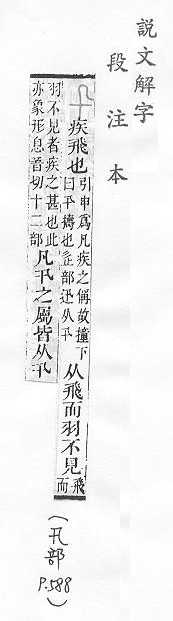 說文解字
段注本
卂 疾飛也 引申爲凡疾之偁故撞下曰卂擣也辵部迅从卂 从飛而羽不見 飛而
羽不見者疾之甚也此亦象形息晉切十二部 凡卂之屬皆从卂
(卂部 P.588)